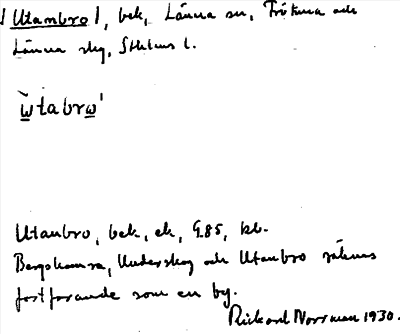 [Utambro], bek, Länna sn, Frötuna och
Länna skg, Sthlms l.
ẁtabrẉ'
Utanbro, bek, ek, G85, kb.
Bergshamra, Underskog och Utanbro räknas
fortfarande som en by.
Rickard Norrman 1930.